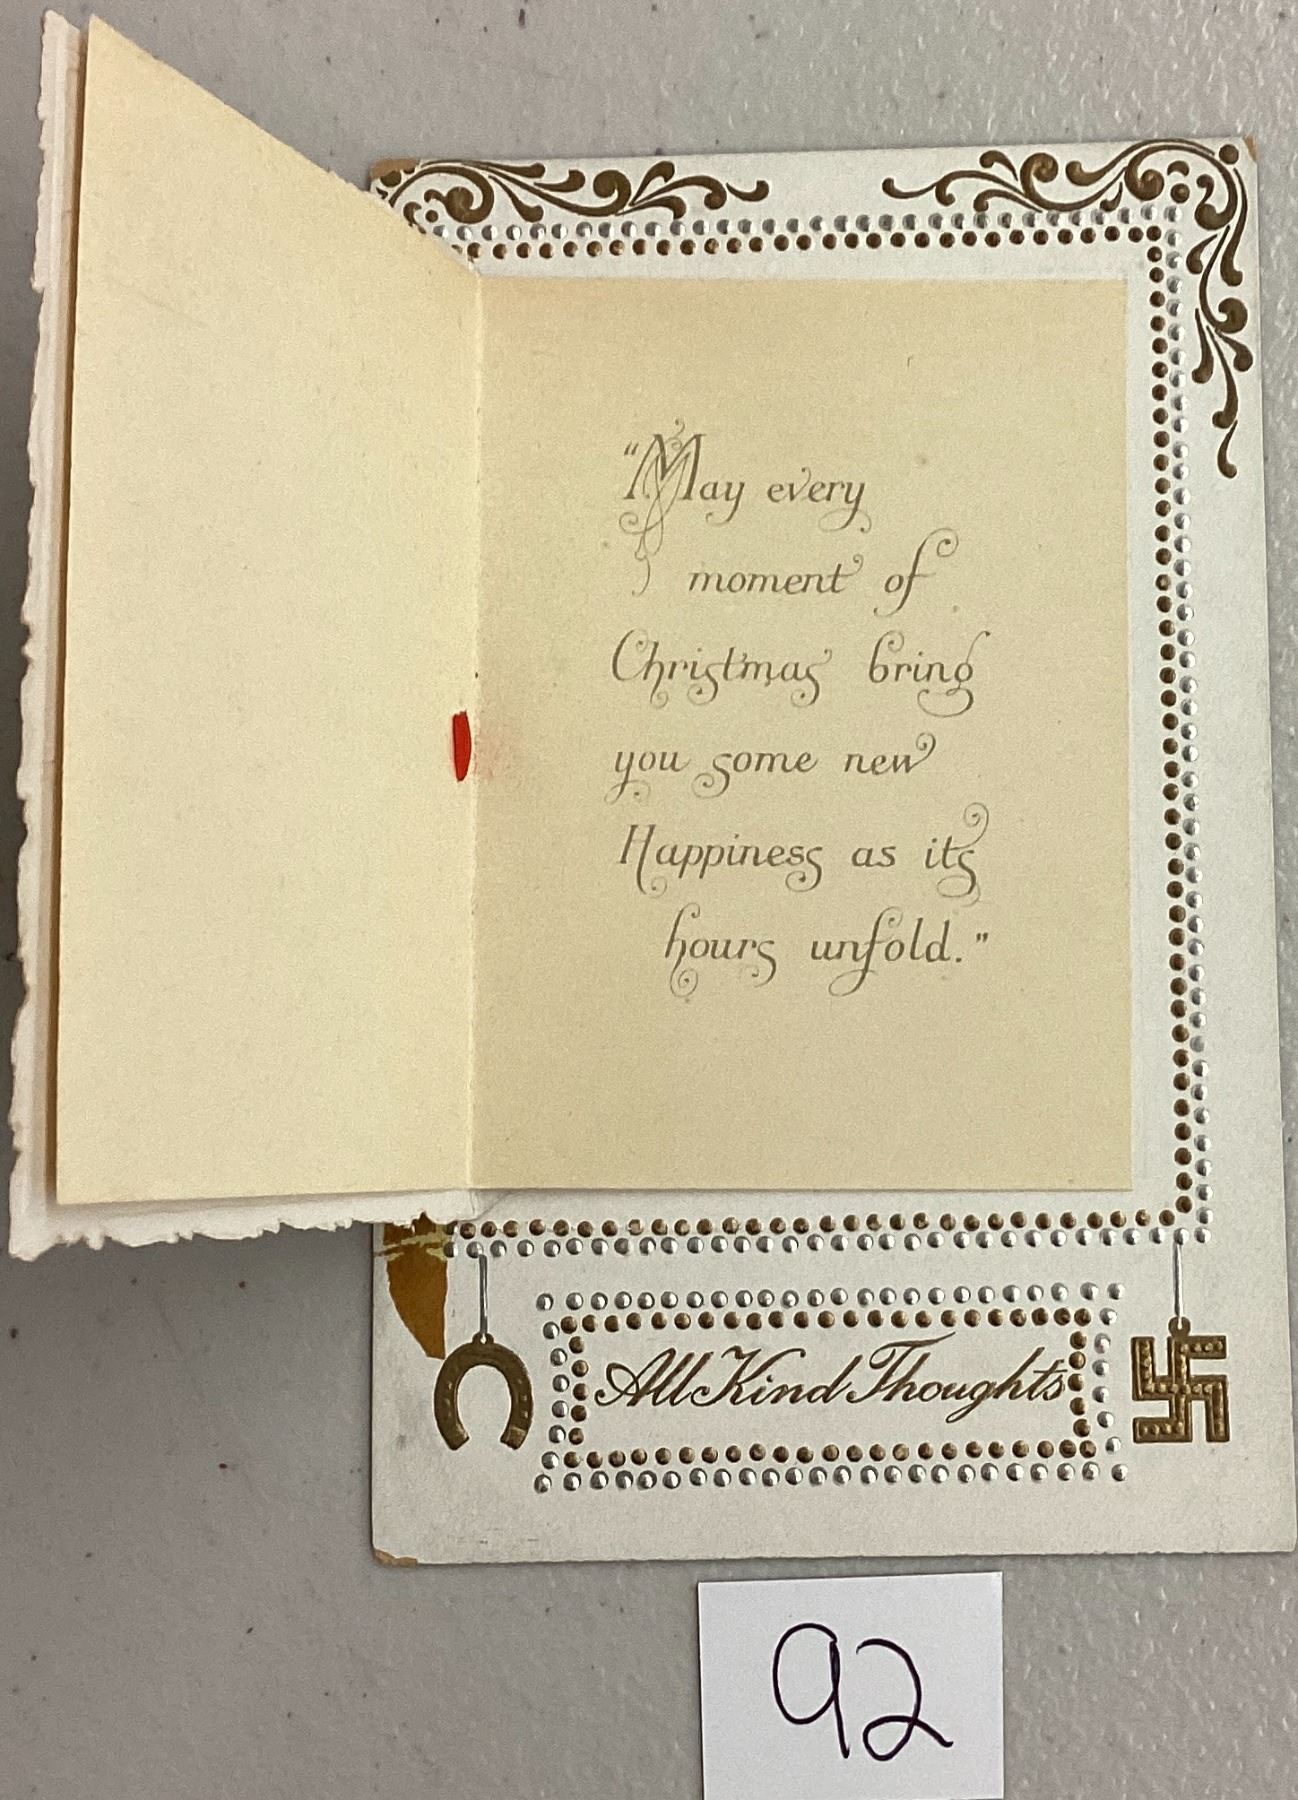 "May every
moment of
Christmas bring
you some new
Happiness as its
hours unfold."
All Kind Thoughts
92